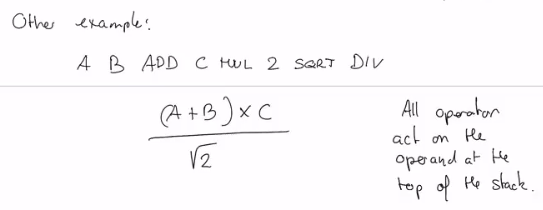 Other example:
A B ADD C MUL 2 SQRT DIV
(A + B) × C
√2
All operator
act on the
operand at the
top of the stack.